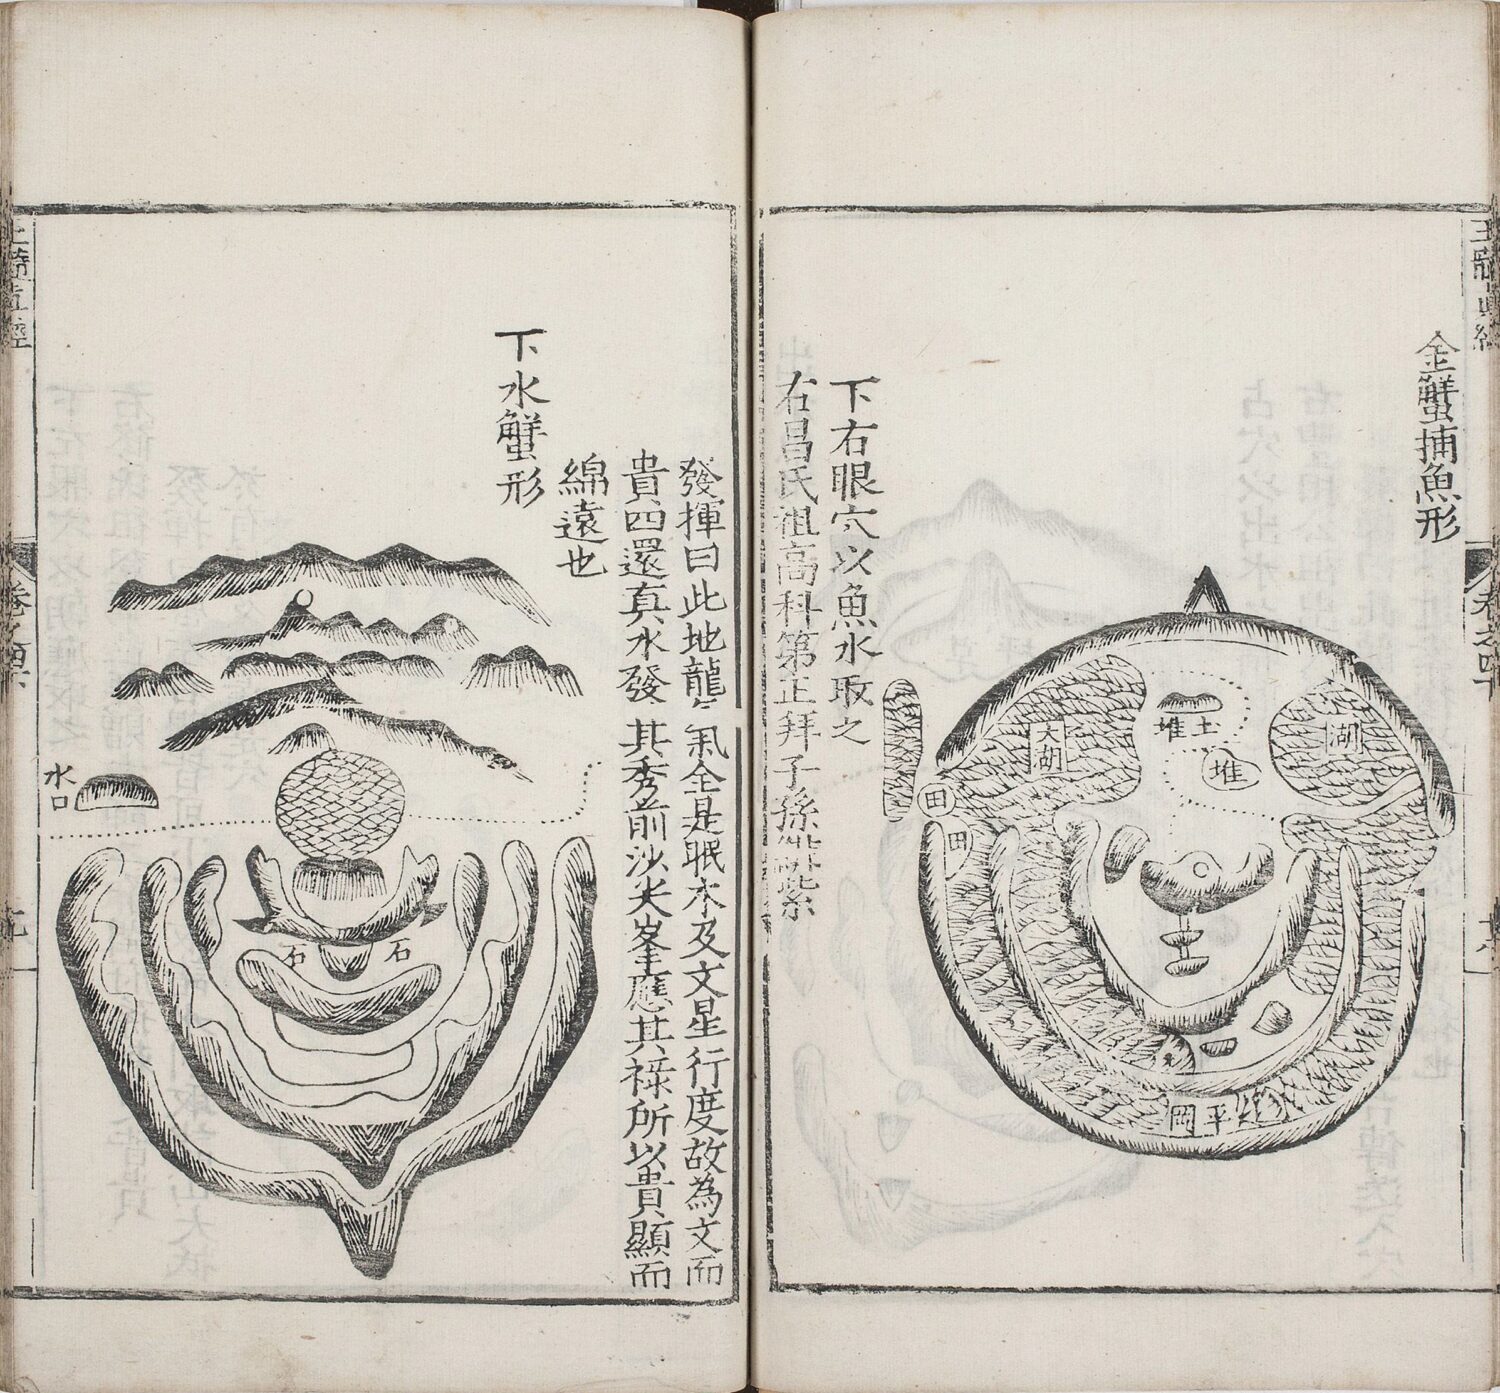 金蟹捕魚形
大湖
湖
土堆
堆
田
田
平岡
下右眼穴以魚水取之
右昌氏祖高科第正拜子孫
發揮曰此地龍氣全是眠木及文星行度故為文而
貴四還真水發其秀前沙尖峯應其祿所以貴顯而
綿遠也
下水蟹形
水口
石
石